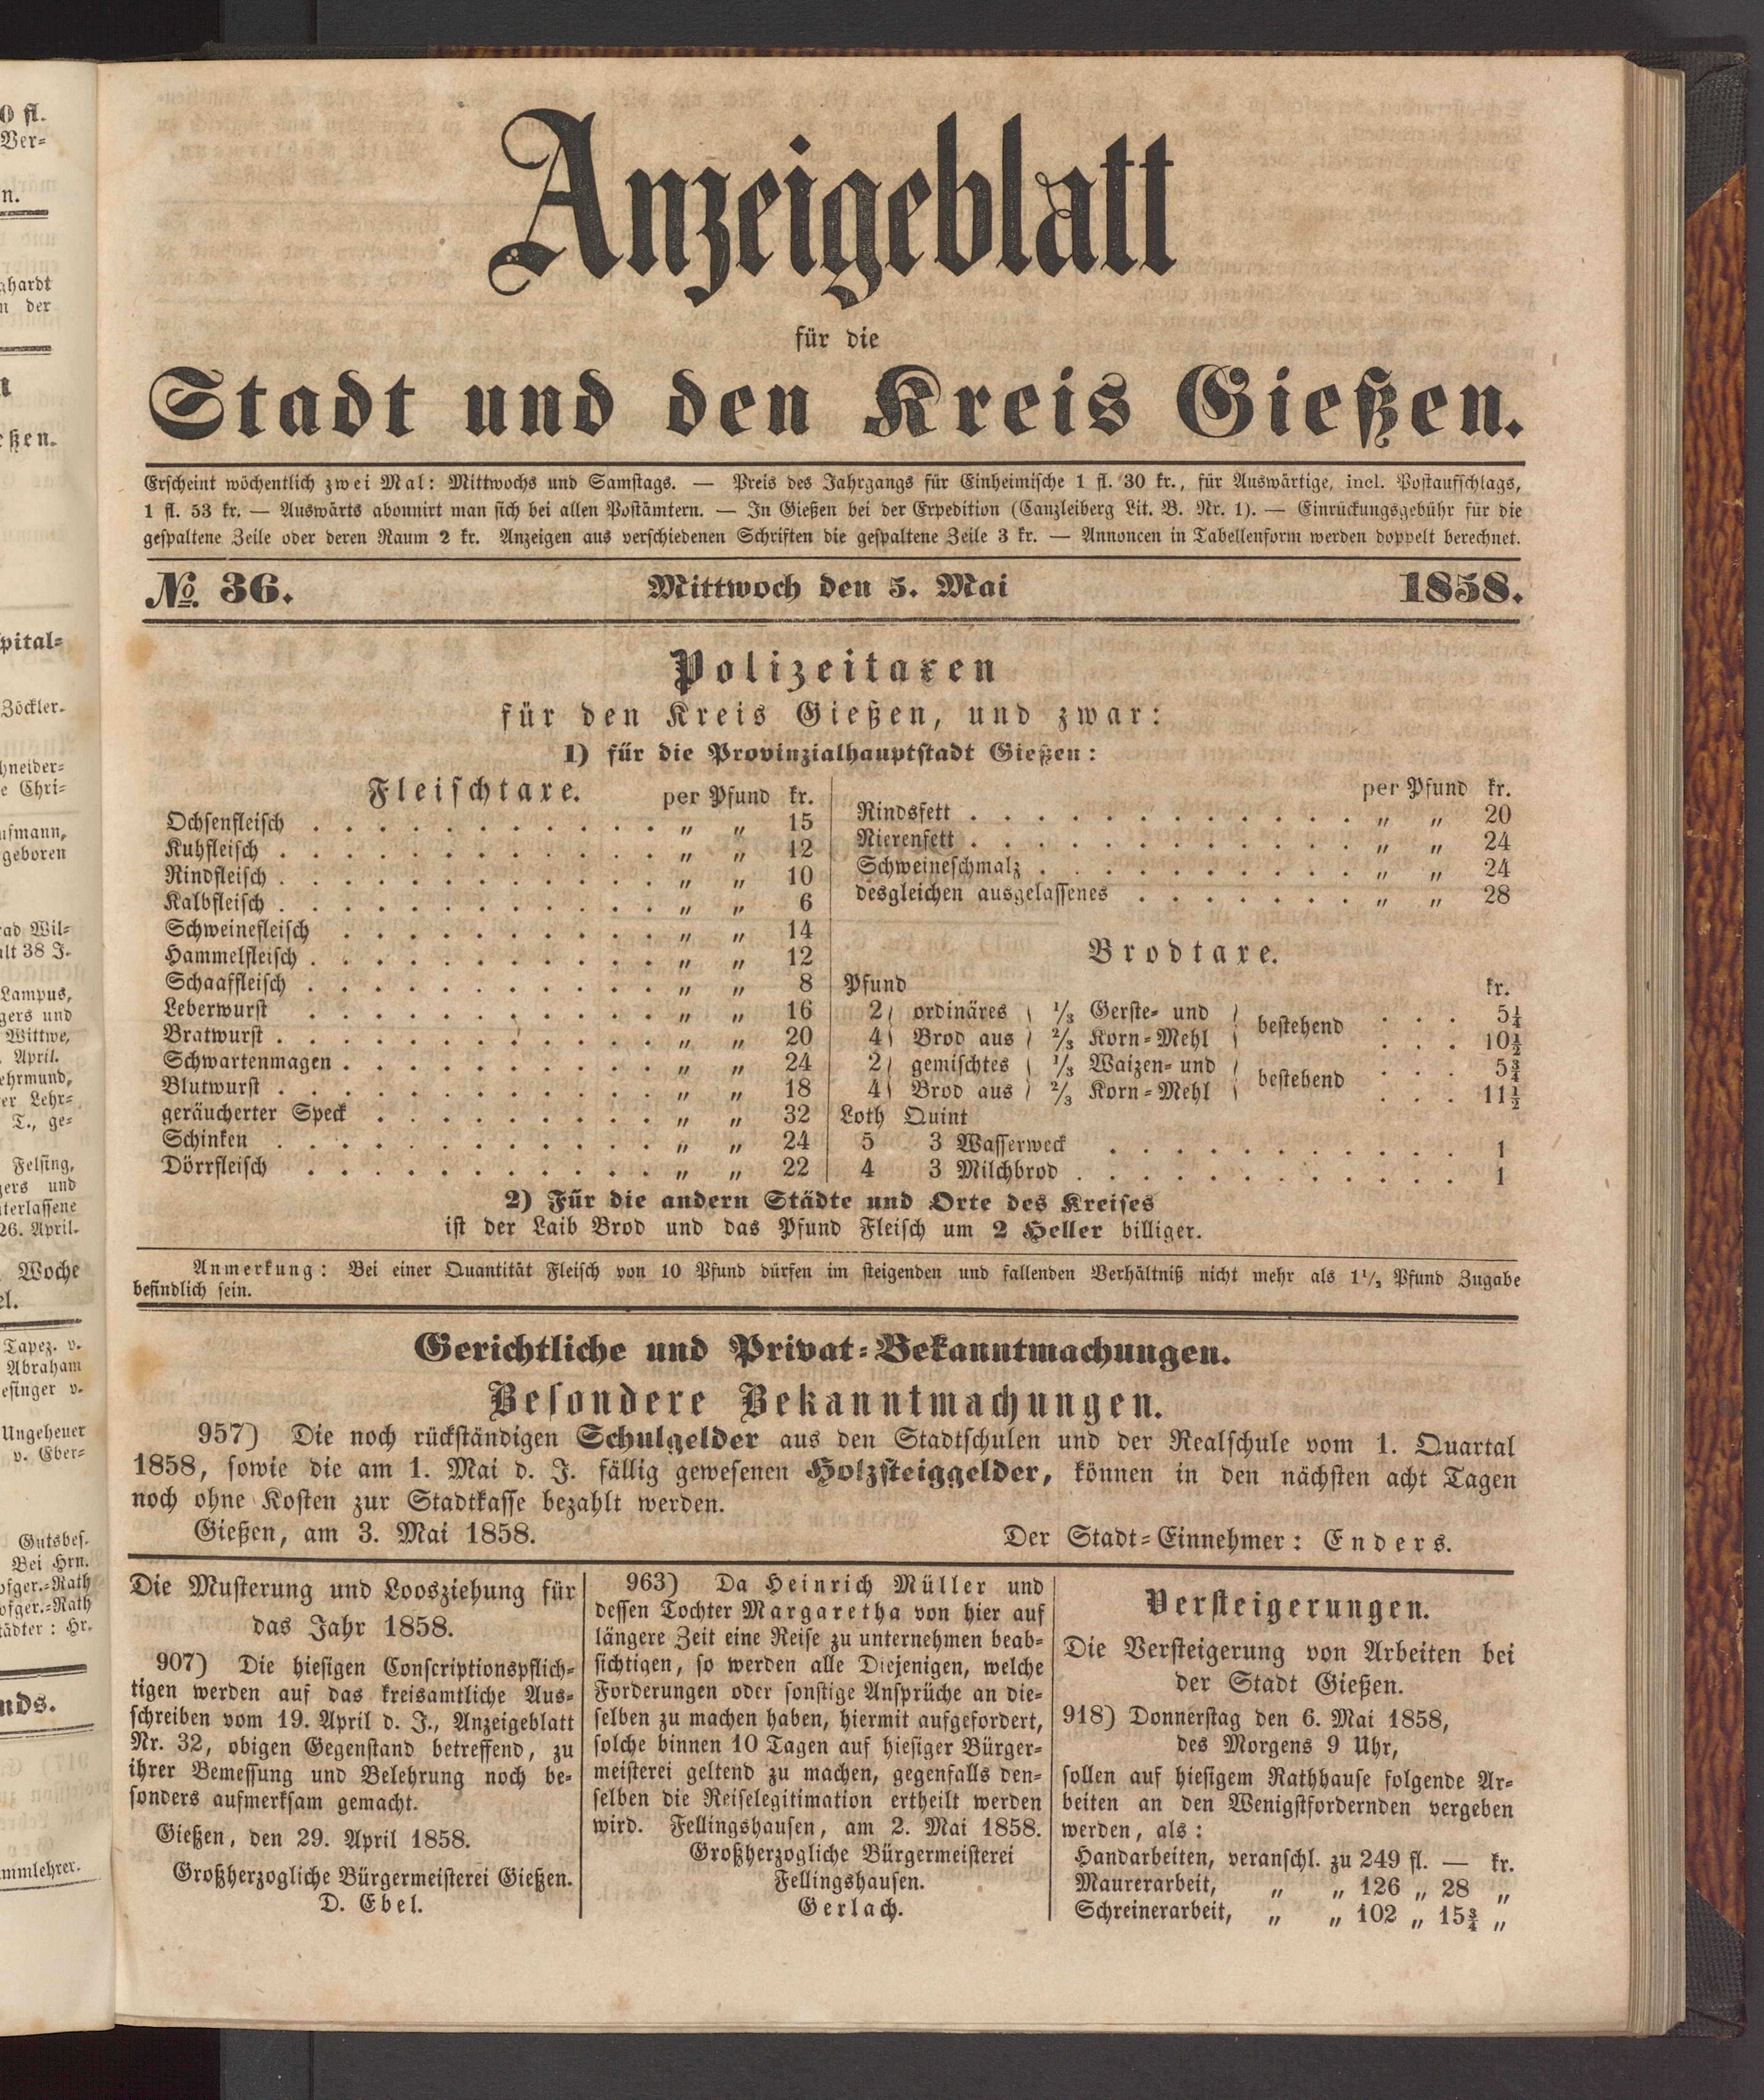 Anzeigeblatt
für die
Stadt und den Kreis Gießen.
Erscheint wöchentlich zwei Mal: Mittwochs und Samstags. — Preis des Jahrgangs für Einheimische 1 fl. 30 kr., für Auswärtige, incl. Postaufschlags,
1 fl. 53 kr. — Auswärts abonnirt man sich bei allen Postämtern. — In Gießen bei der Expedition (Canzleiberg Lit. B. Nr. 1). — Einrückungsgebühr für die
gespaltene Zeile oder deren Raum 2 kr. Anzeigen aus verschiedenen Schriften die gespaltene Zeile 3 kr. — Annoncen in Tabellenform werden doppelt berechnet.
№ 36. Mittwoch den 5. Mai 1858.
Polizeitaxen
für den Kreis Gießen, und zwar:
1) für die Provinzialhauptstadt Gießen:
Fleischtaxe. per Pfund kr.
Ochsenfleisch . . . . . . . . . . . „ „ 15
Kuhfleisch . . . . . . . . . . . . „ „ 12
Rindfleisch . . . . . . . . . . . . „ „ 10
Kalbfleisch . . . . . . . . . . . . „ „ 6
Schweinefleisch . . . . . . . . . . „ „ 14
Hammelfleisch . . . . . . . . . . . „ „ 12
Schaaffleisch . . . . . . . . . . . „ „ 8
Leberwurst . . . . . . . . . . . „ „ 16
Bratwurst . . . . . . . . . . . . „ „ 20
Schwartenmagen . . . . . . . . . . „ „ 24
Blutwurst . . . . . . . . . . . . „ „ 18
geräucherter Speck . . . . . . . . . „ „ 32
Schinken . . . . . . . . . . . . „ „ 24
Dörrfleisch . . . . . . . . . . . „ „ 22
per Pfund kr.
Rindsfett . . . . . . . . . . . . . „ „ 20
Nierenfett . . . . . . . . . . . . . „ „ 24
Schweineschmalz . . . . . . . . . . „ „ 24
desgleichen ausgelassenes . . . . . . . „ „ 28
Brodtaxe.
Pfund kr.
2 } ordinäres { 1/3 Gerste- und } bestehend . . . 5¼
4 } Brod aus { 2/3 Korn-Mehl } . . . 10½
2 } gemischtes { 1/3 Waizen- und } bestehend . . . 5¾
4 } Brod aus { 2/3 Korn-Mehl } . . . 11½
Loth Quint
5 3 Wasserweck . . . . . . . . . . . 1
4 3 Milchbrod . . . . . . . . . . . . 1
2) Für die andern Städte und Orte des Kreises
ist der Laib Brod und das Pfund Fleisch um 2 Heller billiger.
Anmerkung: Bei einer Quantität Fleisch von 10 Pfund dürfen im steigenden und fallenden Verhältniß nicht mehr als 1½ Pfund Zugabe
befindlich sein.
Gerichtliche und Privat-Bekanntmachungen.
Besondere Bekanntmachungen.
957) Die noch rückständigen Schulgelder aus den Stadtschulen und der Realschule vom 1. Quartal
1858, sowie die am 1. Mai d. J. fällig gewesenen Holzsteiggelder, können in den nächsten acht Tagen
noch ohne Kosten zur Stadtkasse bezahlt werden.
Gießen, am 3. Mai 1858. Der Stadt-Einnehmer: Enders.
Die Musterung und Loosziehung für
das Jahr 1858.
907) Die hiesigen Conscriptionspflich-
tigen werden auf das kreisamtliche Aus-
schreiben vom 19. April d. J., Anzeigeblatt
Nr. 32, obigen Gegenstand betreffend, zu
ihrer Bemessung und Belehrung noch be-
sonders aufmerksam gemacht.
Gießen, den 29. April 1858.
Großherzogliche Bürgermeisterei Gießen.
D. Ebel.
963) Da Heinrich Müller und
dessen Tochter Margaretha von hier auf
längere Zeit eine Reise zu unternehmen beab-
sichtigen, so werden alle Diejenigen, welche
Forderungen oder sonstige Ansprüche an die-
selben zu machen haben, hiermit aufgefordert,
solche binnen 10 Tagen auf hiesiger Bürger-
meisterei geltend zu machen, gegenfalls den-
selben die Reiselegitimation ertheilt werden
wird. Fellingshausen, am 2. Mai 1858.
Großherzogliche Bürgermeisterei
Fellingshausen.
Gerlach.
Versteigerungen.
Die Versteigerung von Arbeiten bei
der Stadt Gießen.
918) Donnerstag den 6. Mai 1858,
des Morgens 9 Uhr,
sollen auf hiesigem Rathhause folgende Ar-
beiten an den Wenigstfordernden vergeben
werden, als:
Handarbeiten, veranschl. zu 249 fl. — kr.
Maurerarbeit, „ „ 126 „ 28 „
Schreinerarbeit, „ „ 102 „ 15¾ „